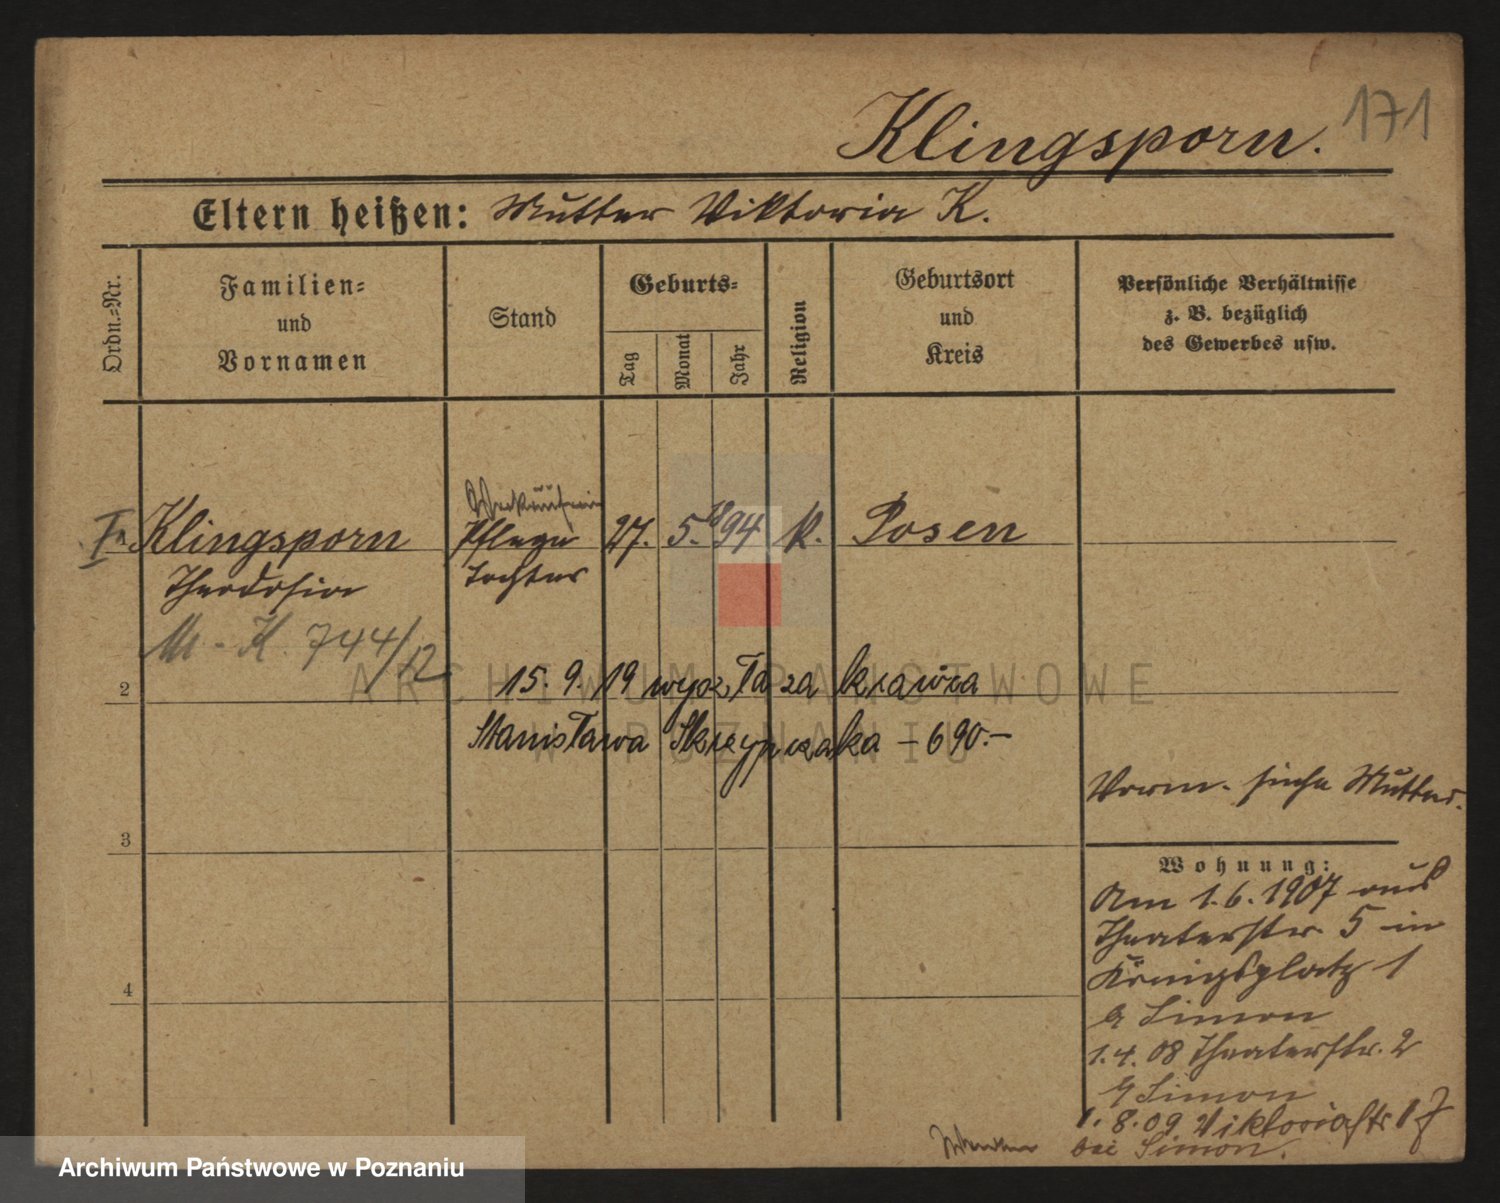 171
Klingsporn.
Eltern heißen: Mutter Viktoria K.
Ordn.-Nr.
Familien-
und
Vornamen
Stand
Geburts-
Tag
Monat
Jahr
Religion
Geburtsort
und
Kreis
Persönliche Verhältnisse
z. B. bezüglich
des Gewerbes usw.
Klingsporn
Pflege
27. 5. 94 k. Posen
Theodosia
tochter
M-K. 744/12
2
15. 9. 19 wyszła za krawca
Stanisława Skrzypczaka – 690.–
Vorm. siehe Mutter.
3
Wohnung:
Am 1.6.1907 aus
Theaterstr. 5 in
Königsplatz 1
b Simon
4
1.4.08 Theaterstr. 2
b Simon
1.8.09 Viktoriastr 17
bei Simon.
ARCHIWUM PAŃSTWOWE
W POZNANIU
Archiwum Państwowe w Poznaniu